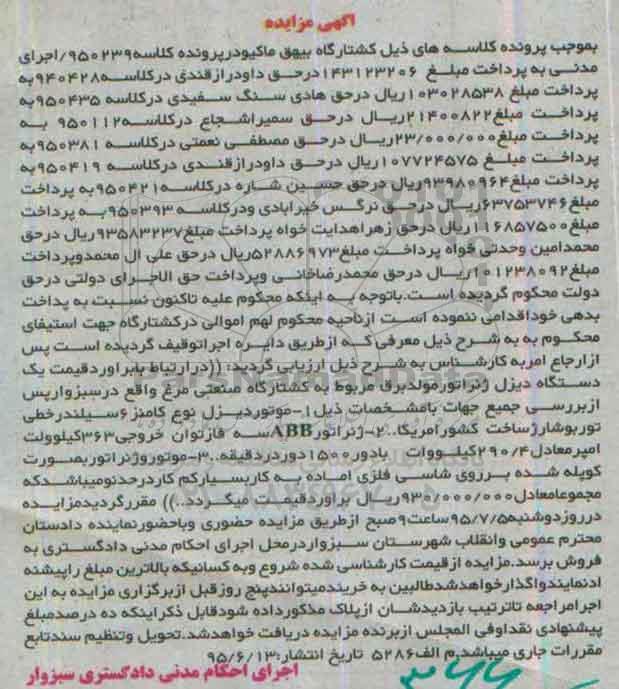 آگهی مزایده
بموجب پرونده کلاسه های ذیل کشتارگاه بیهق ماکیودرپرونده کلاسه۹۵۰۲۳۹/اجرای
مدنی به پرداخت مبلغ ۱۴۳۱۲۳۲۰۶ درحق داودرازقندی درکلاسه۹۴۰۴۲۸به
پرداخت مبلغ ۱۰۳۰۲۸۵۳۸ریال درحق هادی سنگ سفیدی درکلاسه ۹۵۰۴۳۵به
پرداخت مبلغ۲۱۴۰۰۸۲۲ریال درحق سمیراشجاع درکلاسه۹۵۰۱۱۲ به
پرداخت مبلغ۲۳/۰۰۰/۰۰۰ریال درحق مصطفی نعمتی درکلاسه ۹۵۰۳۸۱به
پرداخت مبلغ ۱۰۷۷۲۴۵۷۵ریال درحق داودرازقندی درکلاسه ۹۵۰۴۱۹به
پرداخت مبلغ۹۳۹۸۰۹۶۴ریال درحق حسین شاره درکلاسه۹۵۰۴۲۱به پرداخت
مبلغ۶۳۷۵۳۷۴۶ریال درحق نرگس خیرابادی ودرکلاسه ۹۵۰۳۹۳به پرداخت
مبلغ۱۱۶۸۵۷۵۰۰ریال درحق زهراهدایت خواه پرداخت مبلغ۹۳۵۸۳۲۳۷ریال درحق
محمدامین وحدتی خواه پرداخت مبلغ۵۲۸۸۶۹۷۳ریال درحق علی ال محمدوپرداخت
مبلغ۱۰۱۲۳۸۰۹۲ریال درحق محمدرضاخانی وپرداخت حق الاجرای دولتی درحق
دولت محکوم گردیده است.باتوجه به اینکه محکوم علیه تاکنون نسبت به پداخت
بدهی خوداقدامی ننموده است ازناحیه محکوم لهم اموالی درکشتارگاه جهت استیفای
محکوم به به شرح ذیل معرفی که ازطریق دایره اجراتوقیف گردیده است پس
ازارجاع امربه کارشناس به شرح ذیل ارزیابی گردید: ((درارتباط بابراوردقیمت یک
دستگاه دیزل ژنراتورمولدبرق مربوط به کشتارگاه صنعتی مرغ واقع درسبزوارپس
ازبررسی جمیع جهات بامشخصات ذیل۱-موتوردیزل نوع کامنز۶سیلندرخطی
توربوشارژساخت کشورآمریکا..۲-ژنراتورABBسه فازتوان خروجی۳۶۳کیلوولت
امپرمعادل۲۹۰/۴کیلووات بادور۱۵۰۰دوردردقیقه..۳-موتوروژنراتوربصورت
کوپله شده برروی شاسی فلزی اماده به کاربسیارکم کاردرحدنومیباشدکه
مجموعامعادل۹۳۵/۰۰۰/۰۰۰ریال براوردقیمت میگردد..)) مقررگردیدمزایده
درروزدوشنبه۹۵/۷/۵ساعت۹صبح ازطریق مزایده حضوری وباحضورنماینده دادستان
محترم عمومی وانقلاب شهرستان سبزواردرمحل اجرای احکام مدنی دادگستری به
فروش برسد.مزایده ازقیمت کارشناسی شده شروع وبه کسانیکه بالاترین مبلغ راپیشنه
ادنمایندواگذارخواهدشدطالبین به خریدمیتوانندپنج روزقبل ازبرگزاری مزایده به این
اجرامراجعه تاترتیب بازدیدشان ازپلاک مذکورداده شودقابل ذکراینکه ده درصدمبلغ
پیشنهادی نقداوفی المجلس ازبرنده مزایده دریافت خواهدشد.تحویل وتنظیم سندتابع
مقررات جاری میباشد.م الف۵۲۸۶ تاریخ انتشار:۹۵/۶/۱۳
اجرای احکام مدنی دادگستری سبزوار